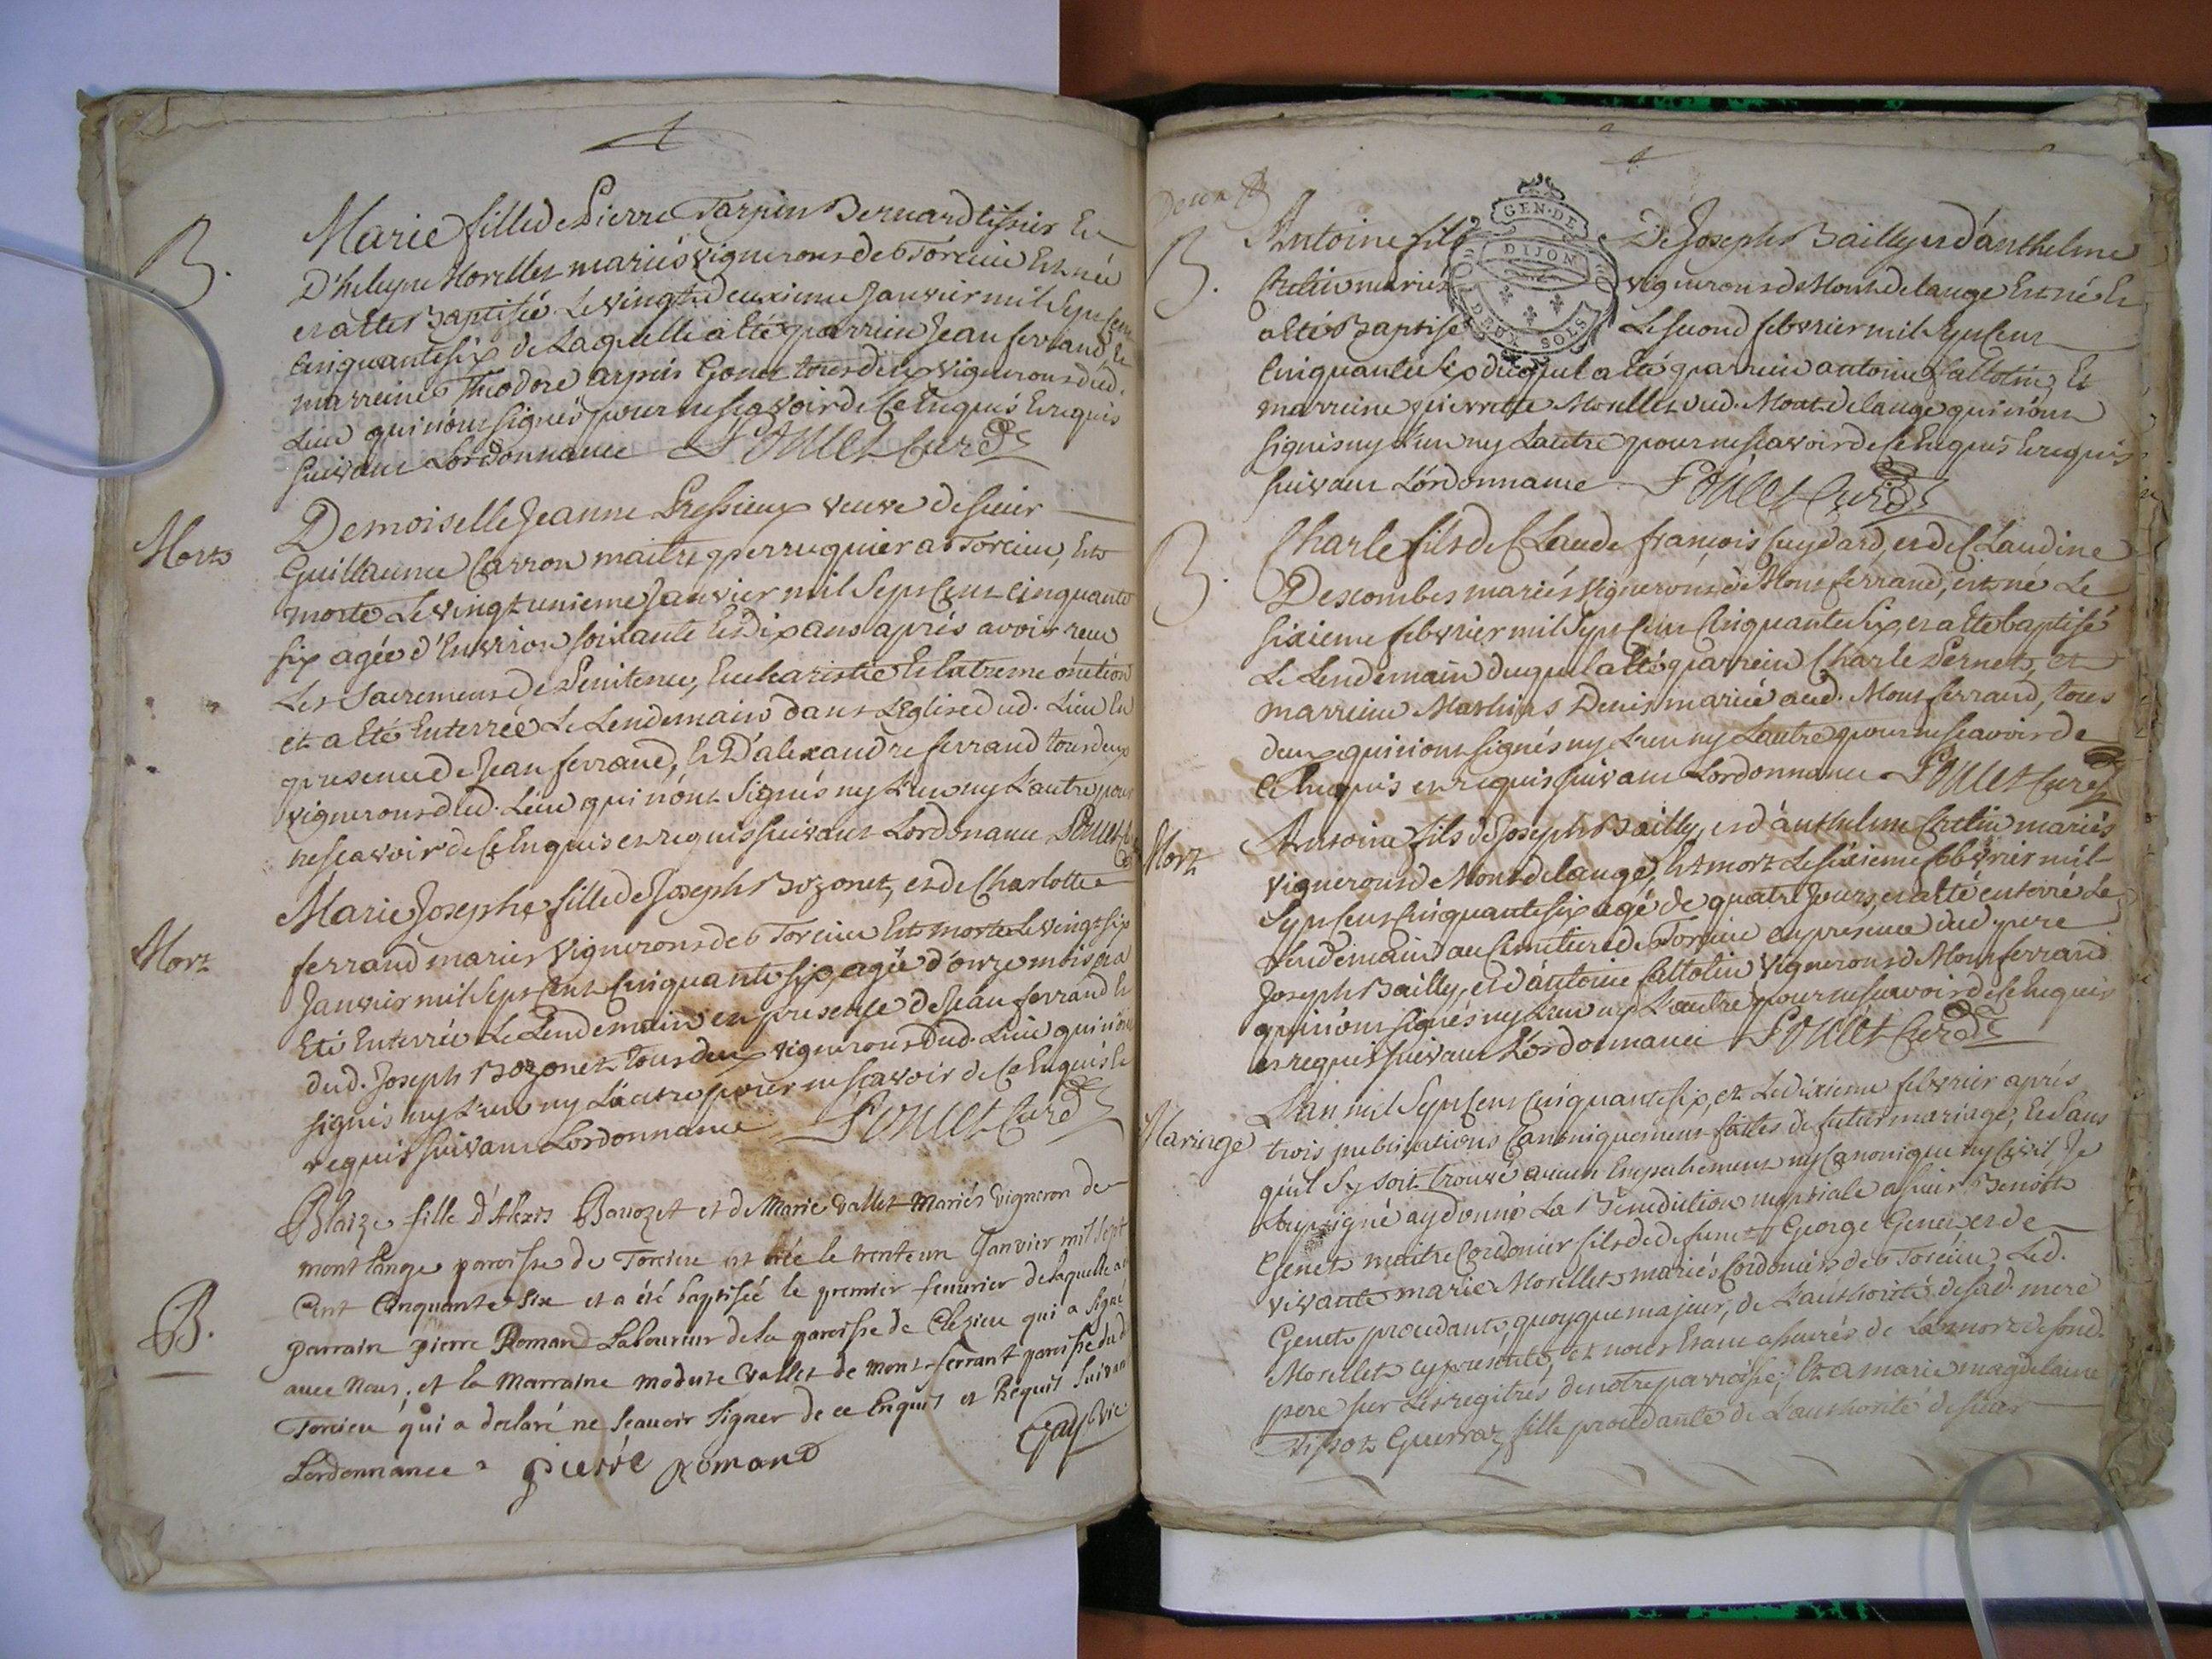 B.
Marie fille de Pierre Tarpin Bernard tissier Et
D'heleyne Morellet mariés vignerons de Torcieu Est née
et a etté Baptisée Le vingt deuxieme Janvier mil Sept Cent
Cinquante six de Laquelle a été parrein Jean ferrand, Et
marreine Theodore arpin Gonet tous deux vignerons dud.
Lieu qui n'ont signés pour ne sçavoir de ce Enquis Et requis
suivant Lordonnance Poullet Curé
Mort
Demoiselle Jeanne Pressieux veuve de sieur
Guillaume Carron maitre perruquier a Torcieu, Est
morte Le vingt unieme Janvier mil Sept Cent Cinquante
six agée d'Environ soixante Et dix ans après avoir reçu
Les Sacremens de Penitence, Eucharistie Et Extreme onction
et a Eté Enterrée Le Lendemain dans L'Eglise dud. Lieu En
presence de Jean ferrand, Et D'alexandre ferrand tous deux
vignerons dud. Lieu qui n'ont signés ny L'un ny L'autre pour
ne sçavoir de Ce Enquis et requis suivant Lordonnance Poullet Curé
Mort
Marie Josephe fille de Joseph Bozonet, et de Charlotte
ferrand mariés vignerons de Torcieu Est morte Le vingt six
Janvier mil Sept Cent Cinquante six, agée d'onze mois et a
Eté Enterrée Le Lendemain en presence de Jean ferrand Et
dud. Joseph Bozonet tous deux vignerons dud. Lieu qui n'ont
signés ny L'un ny L'autre pour ne sçavoir de Ce Enquis Et
requis suivant Lordonnance Poullet Curé
B.
Blaize fille d'Alexis Bauozet et de Marie Vallet Mariés vigneron de
mont lange paroisse de Torcieu est née le trente un Janvier mil sept
Cent Cinquante six et a été baptisée le premier feuvrier de laquelle a
parrain pierre Romand Laboureur de la paroisse de Clezieu qui a signé
avec Nous, et la Marraine modeste Vallet de mont ferrant paroisse dud
Torcieu qui a declaré ne scauoir signer de ce Enquis et Requis suivant
Lordonnance. pierre Romand
B.
Antoine fils De Joseph Bailly et d'anthelme
mariés vignerons de Mont de lange Est né Et
a été Baptisé Le second febvrier mil Sept Cent
Cinquante six duquel a eté parrein antoine Cattolin Et
marreine pierrette Morellet dud. Mont de lange qui n'ont
signés ny L'un ny Lautre pour ne sçavoir de Ce Enquis Et requis
suivant L'ordonnance Poullet Curé
GEN. DE
DIJON
DEUX SOLS
B.
Charle fils de Claude françois Cuydard, et de Claudine
Descombes mariés vignerons de Mont ferrand, est né Le
sixieme febvrier mil Sept Cent Cinquante six, et a eté baptisé
Le Lendemain duquel a eté parrein Charle Pernet, et
marreine Mathias Denis mariée aud. Mont ferrand, tous
deux qui n'ont signés ny L'un ny Lautre pour ne sçavoir de
Ce Enquis et requis suivant Lordonnance Poullet Curé
Mort
Antoine fils de Joseph Bailly, et d'anthelme mariés
vignerons de Mont de lange, Est mort Le sixieme febvrier mil
Sept Cent Cinquante six agé de quatre Jours, et a eté enterré Le
Lendemain au Cimetiere de Torcieu en presence dud. pere
Joseph Bailly, et d'antoine Cattolin vignerons de Mont ferrand
qui n'ont signés ny L'un ny L'autre pour ne sçavoir de Ce Enquis
et requis suivant L'ordonnance Poullet Curé
Mariage
L'an mil Sept Cent Cinquante six, et Le dixieme febvrier après
trois publications Canoniquement faites de futur mariage, Et sans
qu'il sy soit trouvé aucun Empechement ny Canonique ny Civil Je
soussigné ay donné La Benediction nuptiale a sieur Benoit
Genet maitre Cordonier fils de defunct George Genet, et de
vivante marie Morellet mariés Cordoniers de Torcieu, Led.
Genet procedant, quoyque majeur, de L'authorité de sad. mere
Morellet cy presente, et nous Etant assurés de La mort de sond.
pere sur Les regitres de notre parroisse; Et a marie magdelaine
Tissot Guerraz fille procedante de L'authorité de sieur